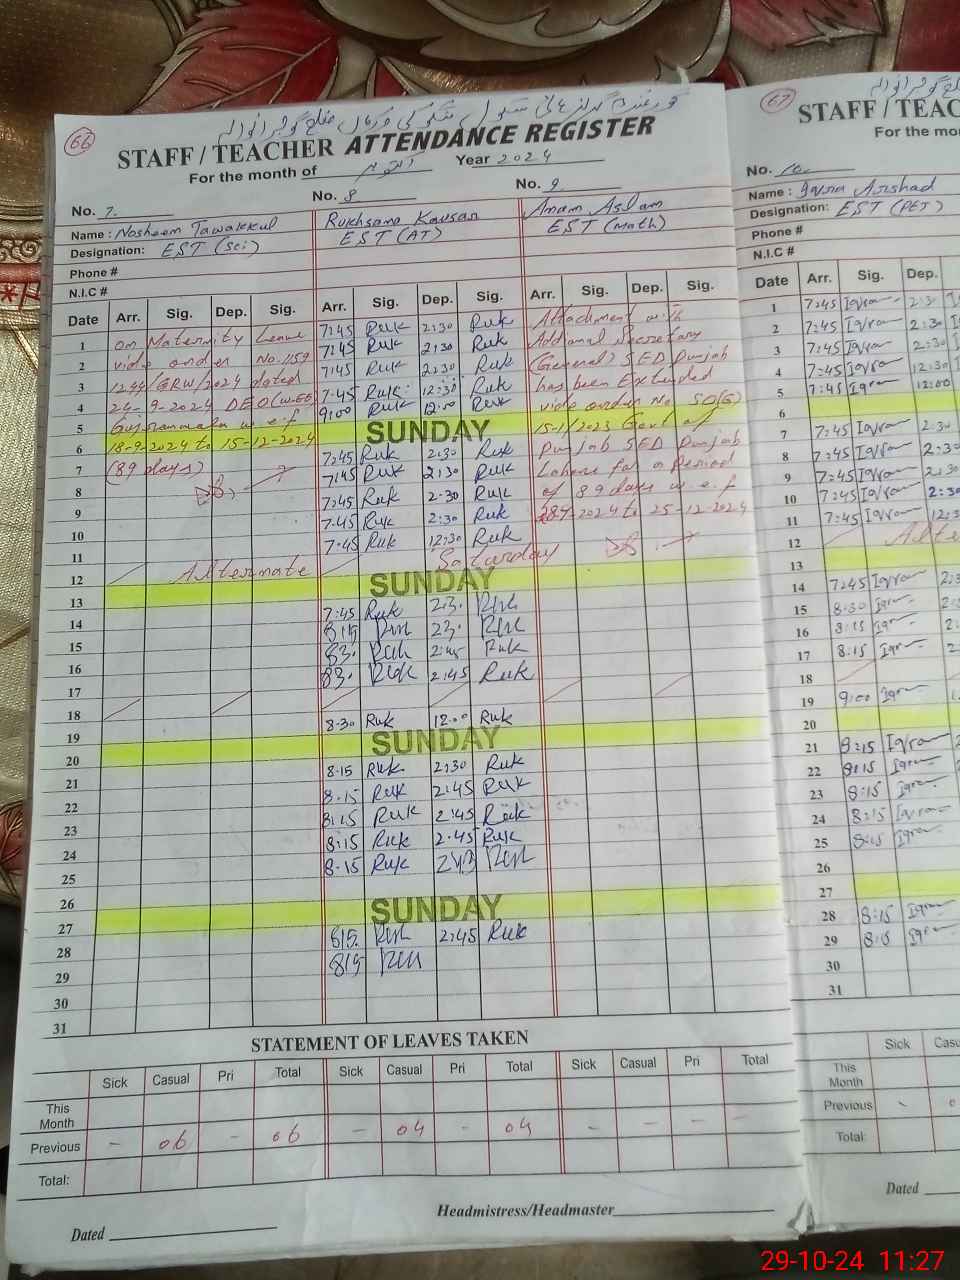 66
STAFF / TEACHER ATTENDANCE REGISTER
For the month of اکتوبر Year 2024
No. 7. No. 8 No. 9
Name: Nosheen Tawakkul Rukhsana Kausar Anam Aslam
Designation: EST (Sci) EST (AT) EST (Math)
Phone #
N.I.C #
Date Arr. Sig. Dep. Sig. Arr. Sig. Dep. Sig. Arr. Sig. Dep. Sig.
1 on Maternity Leave 7:45 Ruk 2:30 Ruk Attachment with
2 vide order No. 1159 7:45 Ruk 2:30 Ruk Additional Secretary
3 1244/GRW/2024 dated 7:45 Ruk 2:30 Ruk (General) SED Punjab
4 DEO (W-EE) 7:45 Ruk 12:30 Ruk has been Extended
5 w.e.f 9:00 Ruk 12:00 Ruk vide order No SO(G)
6 18-9-2024 to 15-12-2024 SUNDAY Govt of
7 (89 days) 7:45 Ruk 2:30 Ruk Punjab SED Punjab
8 7:45 Ruk 2:30 Ruk Lahore for a Period
9 7:45 Ruk 2:30 Ruk of 89 days w.e.f
10 7:45 Ruk 2:30 Ruk 2024 to 25-12-2024
11 7:45 Ruk 12:30 Ruk
12 Alternate Saturday
13 SUNDAY
14 7:45 Ruk 23. Ruk
15 815 Ruk 23. Ruk
16 83. Ruk 2:45 Ruk
17 83. Ruk 2:45 Ruk
18
19 8:30 Ruk 12:00 Ruk
20 SUNDAY
21 8:15 Ruk 2:30 Ruk
22 8:15 Ruk 2:45 Ruk
23 8:15 Ruk 2:45 Ruk
24 8:15 Ruk 2:45 Ruk
25 8:15 Ruk Ruk
26
27 SUNDAY
28 815 Ruk 2:45 Ruk
29 815 Ruk
30
31
STATEMENT OF LEAVES TAKEN
Sick Casual Pri Total Sick Casual Pri Total Sick Casual Pri Total
This Month
Previous - 06 - 06 - 04 - 04 - - - -
Total:
Dated Headmistress/Headmaster
67
STAFF / TEAC
For the mon
No. 10.
Name: Iqra Arshad
Designation: EST (PET)
Phone #
N.I.C #
Date Arr. Sig. Dep.
1 7:45 Iqra 2:30
2 7:45 Iqra 2:30
3 7:45 Iqra 2:30
4 7:45 Iqra 12:30
5 7:45 Iqra 12:00
6
7 7:45 Iqra 2:30
8 7:45 Iqra 2:30
9 7:45 Iqra 2:30
10 7:45 Iqra 2:30
11 7:45 Iqra 12:3
12 Alte
13
14 7:45 Iqra 2:3
15 8:30 Iqra 2:
16 8:15 Iqra 2:
17 8:15 Iqra 2
18
19 9:00 Iqra
20
21 8:15 Iqra
22 8:15 Iqra
23 8:15 Iqra
24 8:15 Iqra
25 8:15 Iqra
26
27
28 8:15 Iqra
29 8:15 Iqra
30
31
Sick Casu
This Month
Previous - 0
Total:
Dated
29-10-24 11:27